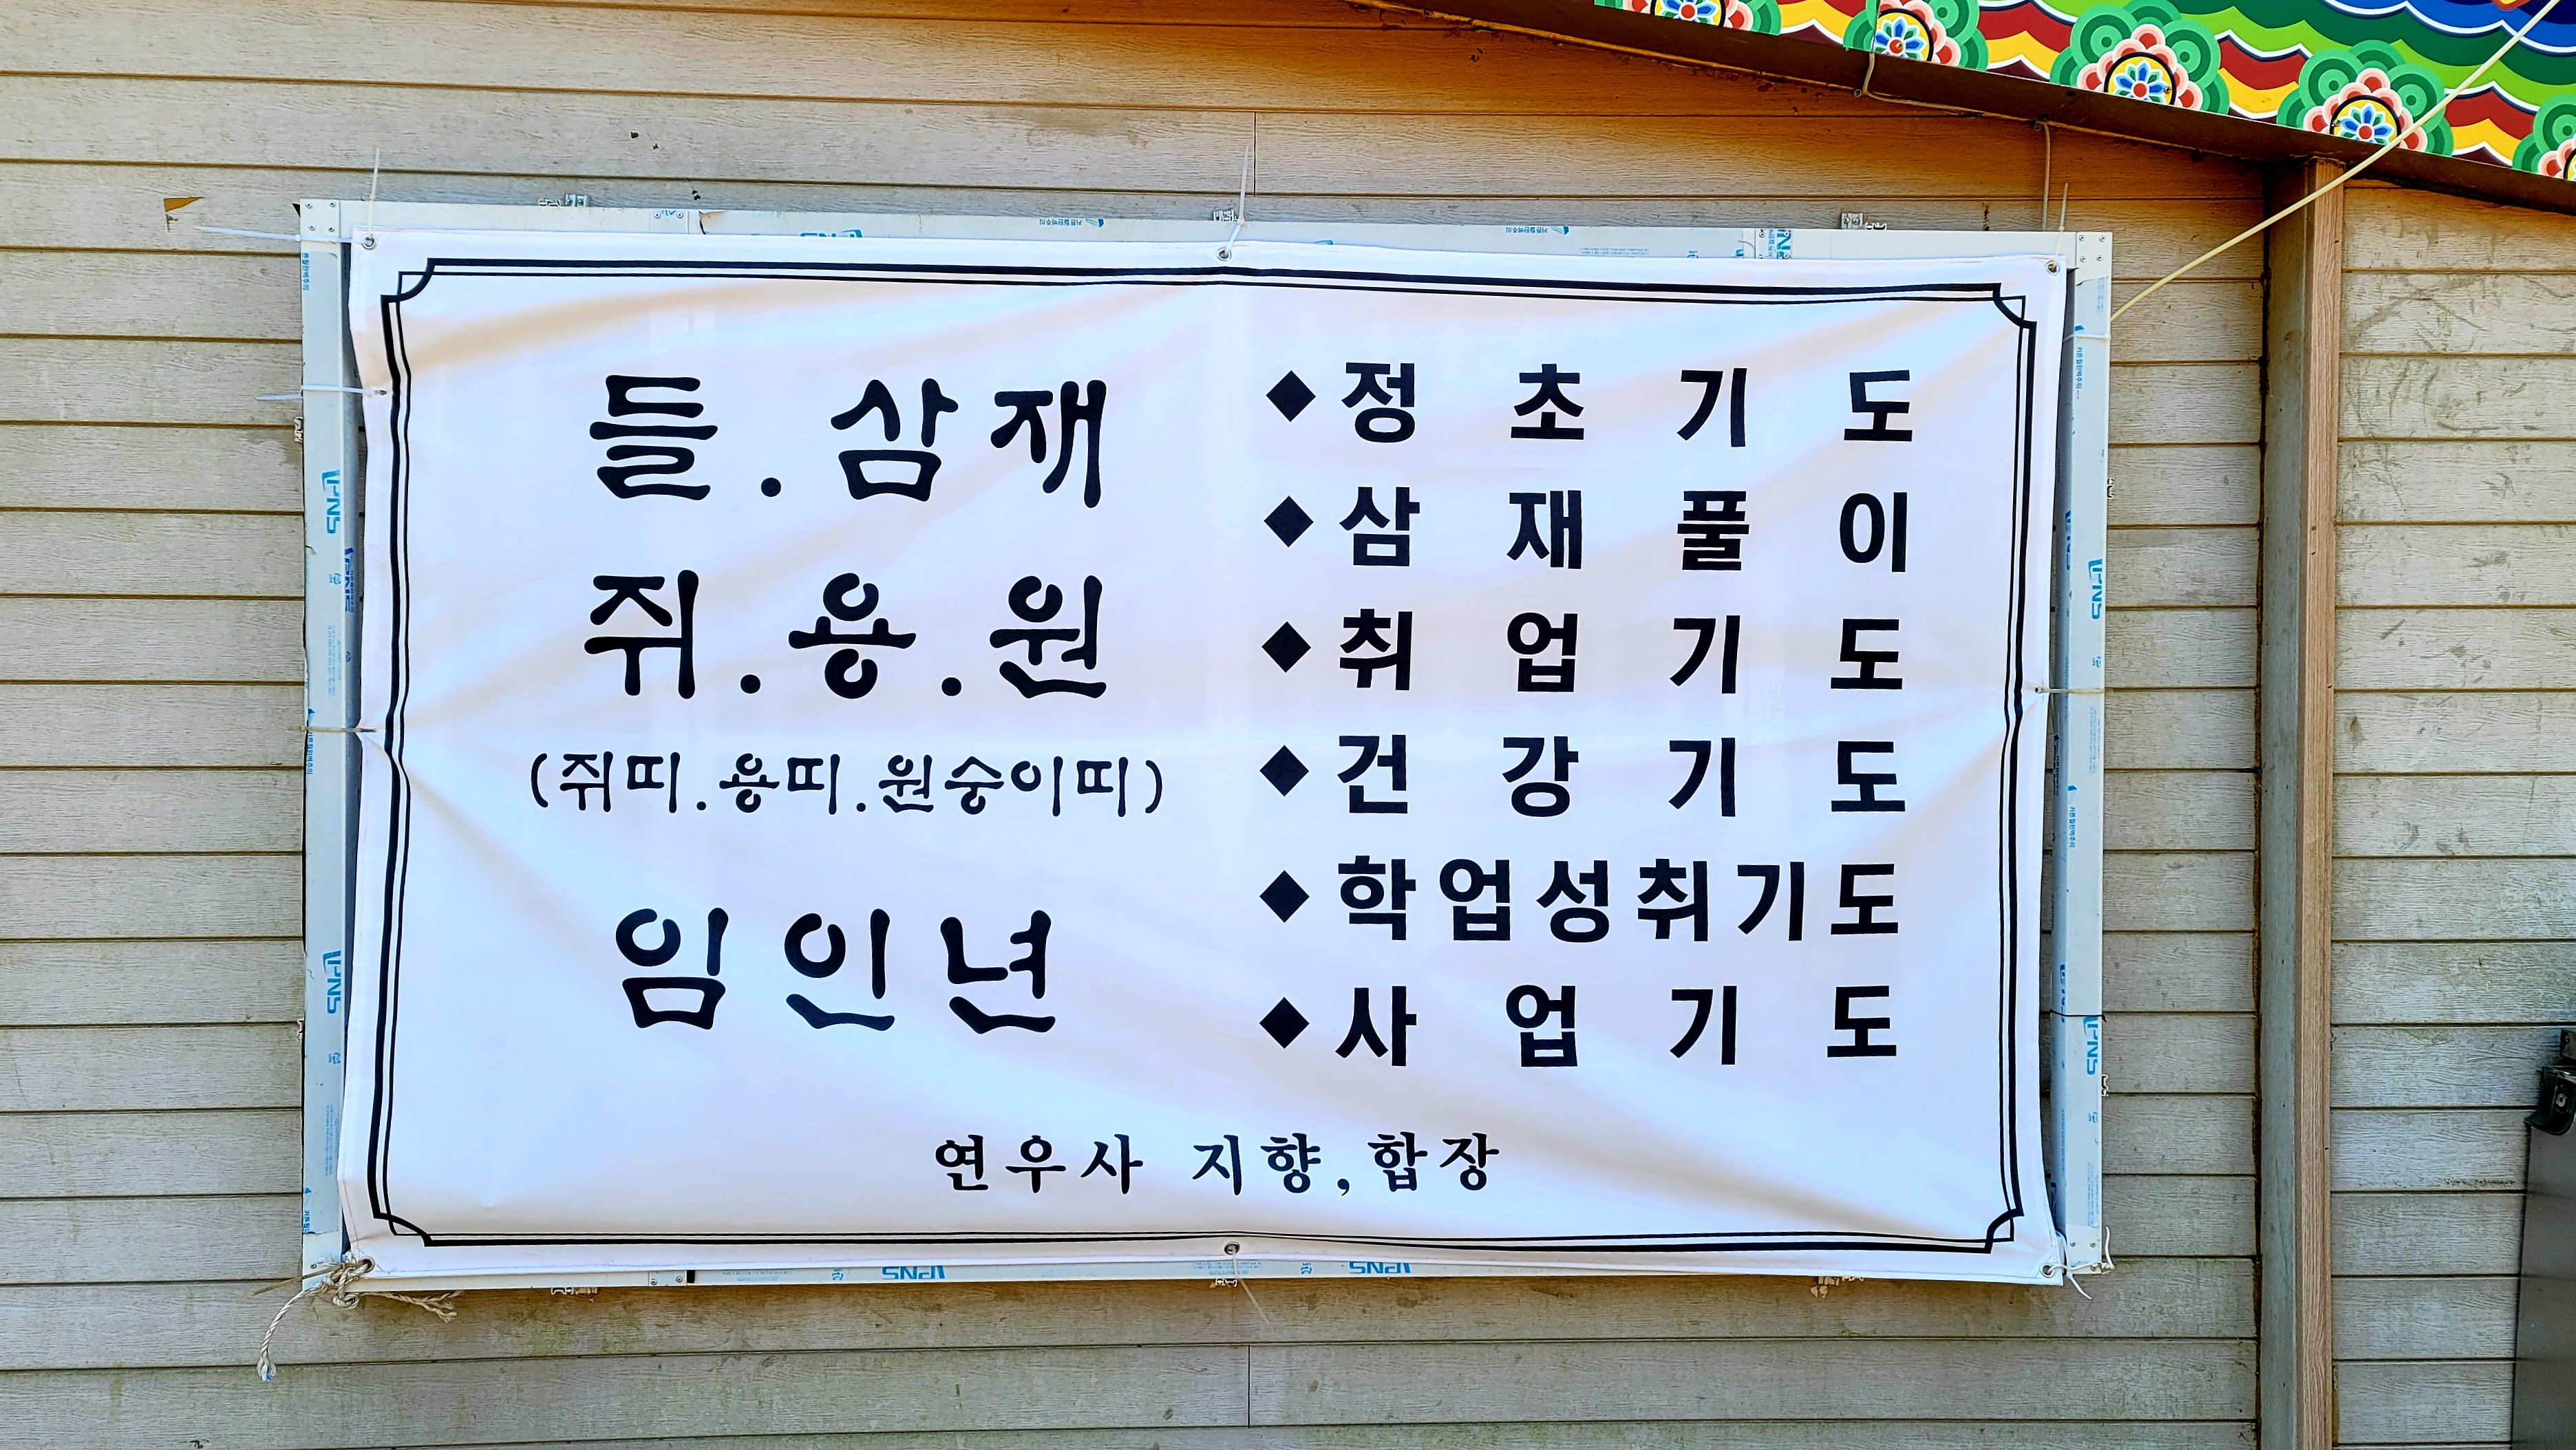 들.삼재
쥐.용.원
(쥐띠.용띠.원숭이띠)
임인년
◆정초기도
◆삼재풀이
◆취업기도
◆건강기도
◆학업성취기도
◆사업기도
연우사 지향,합장